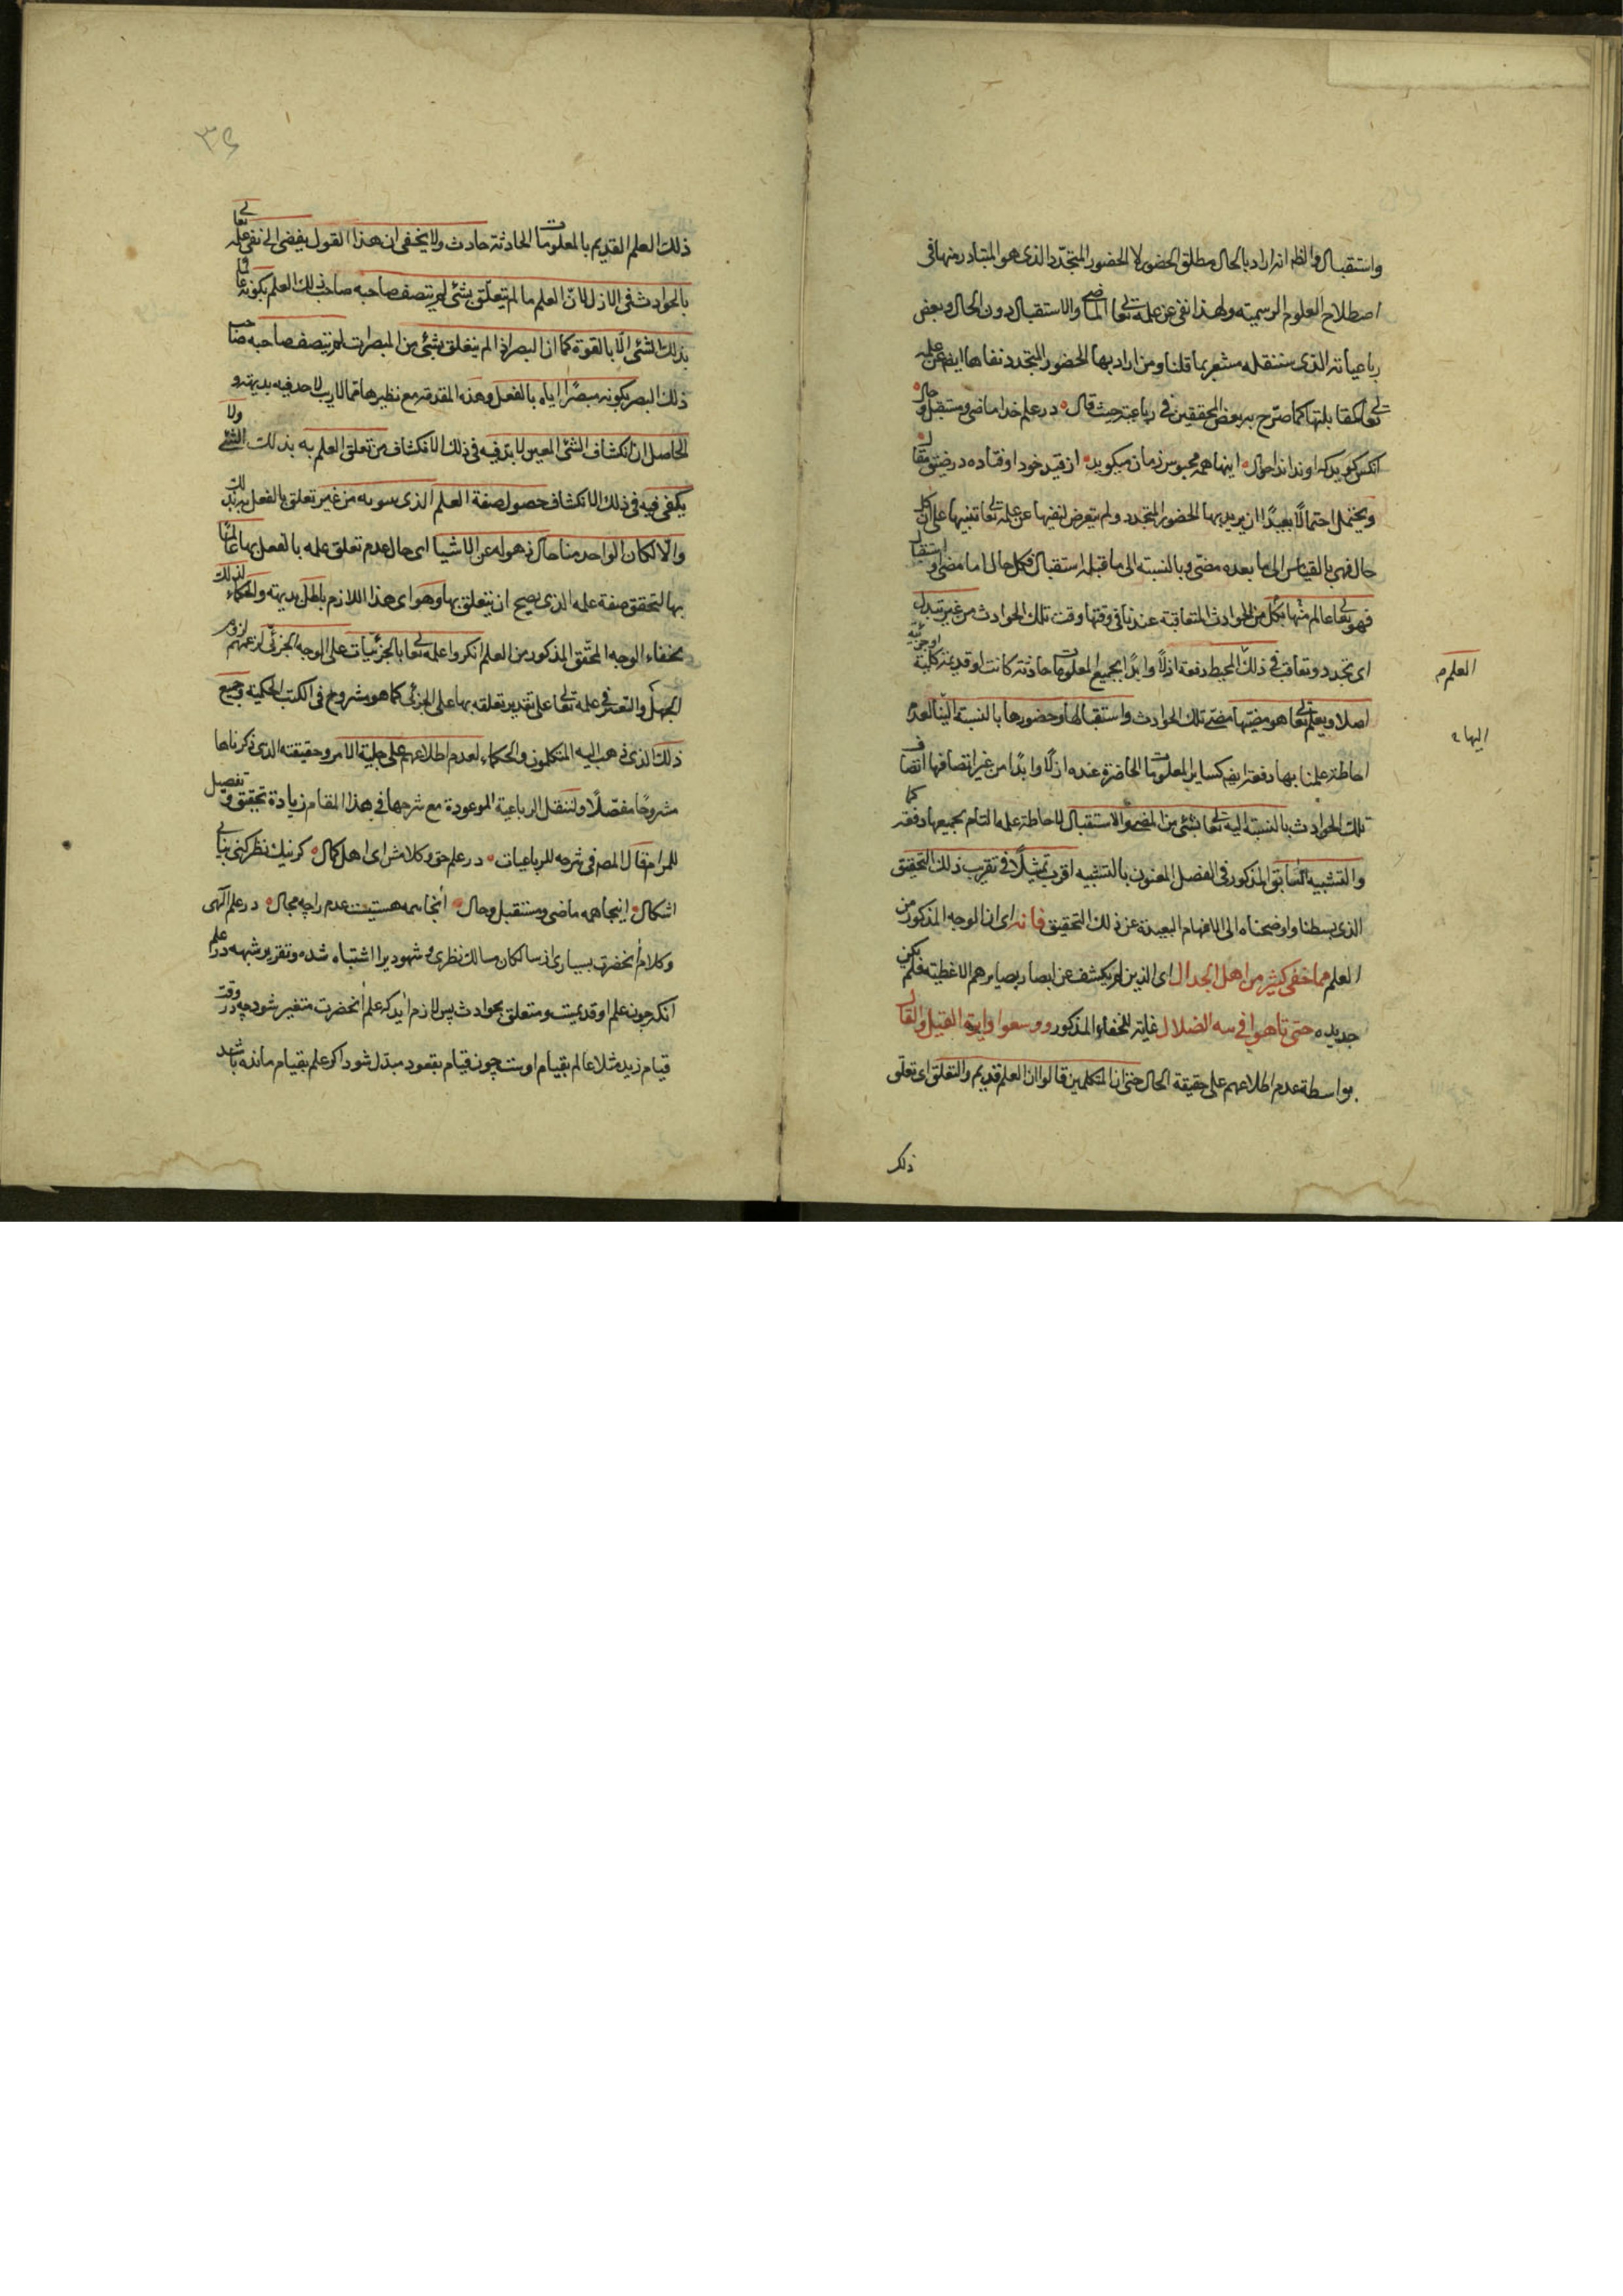 واستقبال والظاهر انه اراد بالحال مطلق الحضور لا الحضور المتجدد الذى هو المتبادر منها فى
اصطلاح العلوم الرسمية ولهذا نفى عن علمه تعالى الماضى والاستقبال دون الحال وبعض
رباعياته الذى ستنقله مشعر بما قلنا ومن اراد بها الحضور المتجدد نفاها ايضا عن علمه
تعالى كمقابلتها كما صرّح به بعض المحققين فى رباعيته حيث قال در علم خدا ماضى ومستقبل وحال
آنكس كويد كه او نداند احوال اينها همه محبوس زمان ميكويد از قيد خود اوفتاده در ضيق مقال
ويحتمل احتمالا بعيدًا ان يريد بها الحضور المتجدد ولم يتعرض لنفيها عن علمه تعالى تنبيها على ان كل
حال فهى بالقياس الى ما بعده مضىّ وبالنسبة الى ما قبله استقبال فكل حال اما مضى او استقبال
فهو تعالى عالم منها بكل من الحوادث المتعاقبة عندنا فى وقتها وقت تلك الحوادث من غير تبدل
اى تجدد وتعاقب فى ذلك المحيط دفعة ازلًا وابدًا بجميع المعلومات حادثة كانت او قديمة كلية او جزئية
العلم م
اصلا ويعلم تعالى هو مضيّها مضىّ تلك الحوادث واستقبالها وحضورها بالنسبة الينا لعدم
اليها
احاطة علمنا بها دفعة ايض كساير المعلومات الحاضرة عنده ازلًا وابدًا من غير اتصافها اتصاف
تلك الحوادث بالنسبة اليه تعالى بشئ من المضى والاستقبال لاحاطة علمه التام بجميعها دفعة كما
والتشبيه السابق المذكور فى الفصل المعنون بالتشبيه اقرب تمثيلًا فى تقريب ذلك التحقيق
الذى بسطنا واوضحناه الى الافهام البعيدة عن ذلك التحقيق فانه اى ان الوجه المذكور من
العلم مما خفى كثير من اهل الجدال اى الذين لم يكشف عن ابصار بصايرهم الاغطية فلم يكن
حديده حتى تاهوا فى سه الضلال غاية للخفاء المذكور ووسعوا دايرة القيل والقال
بواسطة عدم اطلاعهم على حقيقة الحال حتى ان المتكلمين قالوا ان العلم قديم والتعلق اى تعلق
ذلك
٣٤
ذلك العلم القديم بالمعلومات الحادثة حادث ولا يخفى ان هذا القول يفضى الى نفى علمه تعالى
بالحوادث فى الازل لان العلم ما لم يتعلق بشئ لم يتصف صاحبه صاحب ذلك العلم بكونه عالما
بذلك الشئ الّا بالقوة كما ان البصر اذا لم يتعلق بشئ من المبصرات لم يتصف صاحبه صاحب
ذلك البصر بكونه مبصرًا اياه بالفعل وهذه المقدمة مع نظيرها مما لا ريب لاحد فيه بديهة و
الحاصل ان انكشاف الشئ المعين لا بد فيه فى ذلك الانكشاف من تعلق العلم به بذلك الشئ ولا
يكفى فيه فى ذلك الانكشاف حصول صفة العلم الذى سوبه من غير تعلق بالفعل به بذلك
والّا لكان الواحد منا حال ذهوله عن الاشيا اى حال عدم تعلق علمه بالفعل بها عالمًا
بها لتحقق صفة علمه الذى يصح ان يتعلق بها وهو اى هذا اللازم باطل بديهة والحكماء لذلك
بخفاء الوجه المحقق المذكور من العلم انكروا علمه تعالى بالجزئيات على الوجه الجزئى لزعمهم لزوم
الجهل والتغير فى علمه تعالى على تقدير تعلقه بها على الجزئى كما هو مشروح فى الكتب الحكمية وجميع
ذلك الذى ذهب اليه المتكلمون والحكماء لعدم اطلاعهم على جلية الامر وحقيقته الذى ذكرناها
مشروحًا مفصّلًا ولننقل الرباعية الموعودة مع شرحها فى هذا المقام زيادة تحقيق وتفصيل
للمرام قال المصر فى شرحه للرباعيات در علم حق وكلامش اى اهل كمال كر نيك نظر كنى نيابى
اشكال اينجا همه ماضى ومستقبل وحال آنجا همه هستيست عدم را چه مجال در علم آلهى
وكلام آنحضرت بسيارى از سالكان مسالك نظرى و شهودى را اشتباه شده وتقرير شبهه در علم
آنكه چون علم او قديمست ومتعلق بحوادث پس لازم آيد كه علم آنحضرت متغير شود چه در وقت
قيام زيد مثلا عالم بقيام اوست چون قيام بقعود مبدّل شود اكر علم بقيام مانده باشد